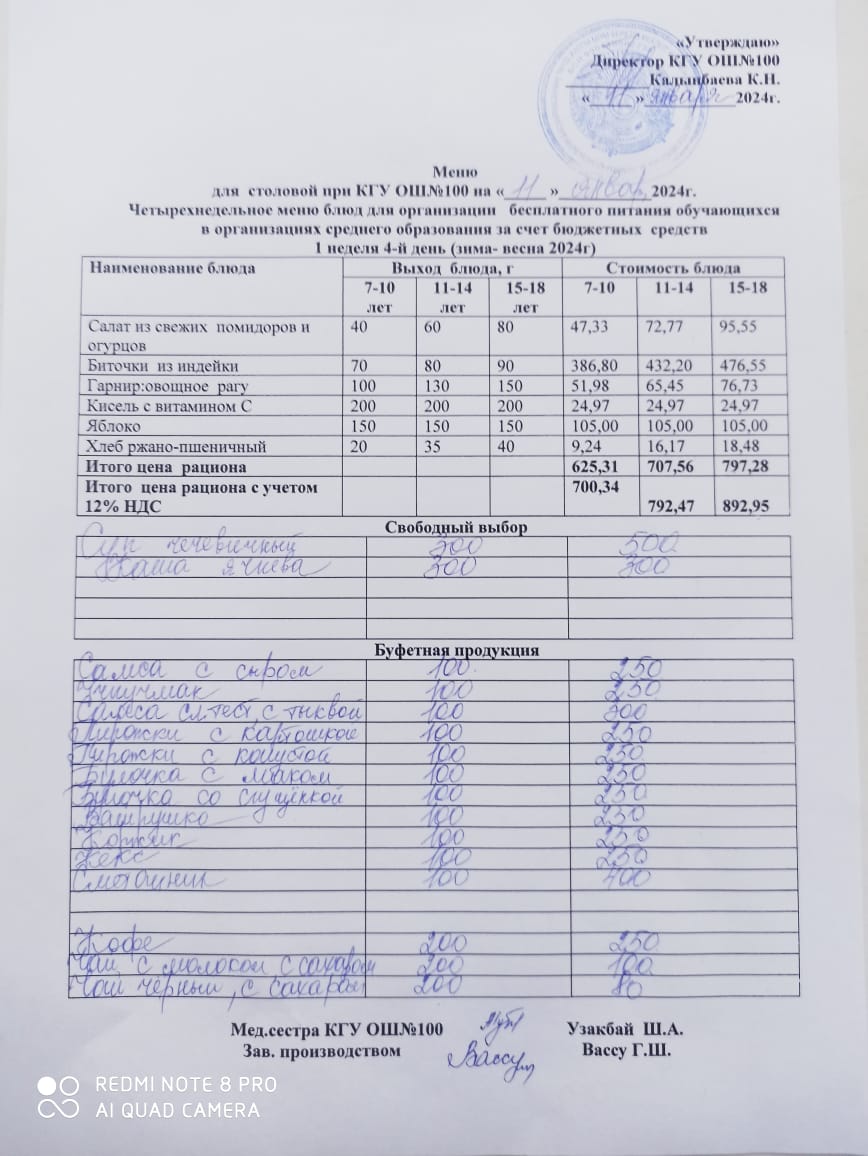 «Утверждаю»
Директор КГУ ОШ№100
Калынбаева К.Н.
« 11 » января 2024г.
Меню
для столовой при КГУ ОШ№100 на « 11 » январ 2024г.
Четырехнедельное меню блюд для организации бесплатного питания обучающихся
в организациях среднего образования за счет бюджетных средств
1 неделя 4-й день (зима- весна 2024г)
Наименование блюда Выход блюда, г Стоимость блюда
7-10 лет 11-14 лет 15-18 лет 7-10 11-14 15-18
Салат из свежих помидоров и огурцов 40 60 80 47,33 72,77 95,55
Биточки из индейки 70 80 90 386,80 432,20 476,55
Гарнир:овощное рагу 100 130 150 51,98 65,45 76,73
Кисель с витамином С 200 200 200 24,97 24,97 24,97
Яблоко 150 150 150 105,00 105,00 105,00
Хлеб ржано-пшеничный 20 35 40 9,24 16,17 18,48
Итого цена рациона 625,31 707,56 797,28
Итого цена рациона с учетом 12% НДС 700,34 792,47 892,95
Свободный выбор
Суп чечевичный 300 500
Каша ячнева 300 300
Буфетная продукция
Самса с сыром 100 250
Эчпучмак 100 250
Самса сл.тест, с тыквой 100 300
Пирожки с картошкой 100 250
Пирожки с капустой 100 250
Булочка с маком 100 250
Булочка со сгущёнкой 100 250
Ватрушка 100 250
Коржик 100 250
Кекс 100 250
Сметанник 100 400
Кофе 200 250
Чай с молоком с сахаром 200 100
Чай черный, с сахаром 200 80
Мед.сестра КГУ ОШ№100 Узакбай Ш.А.
Зав. производством Вассу Вассу Г.Ш.
REDMI NOTE 8 PRO
AI QUAD CAMERA